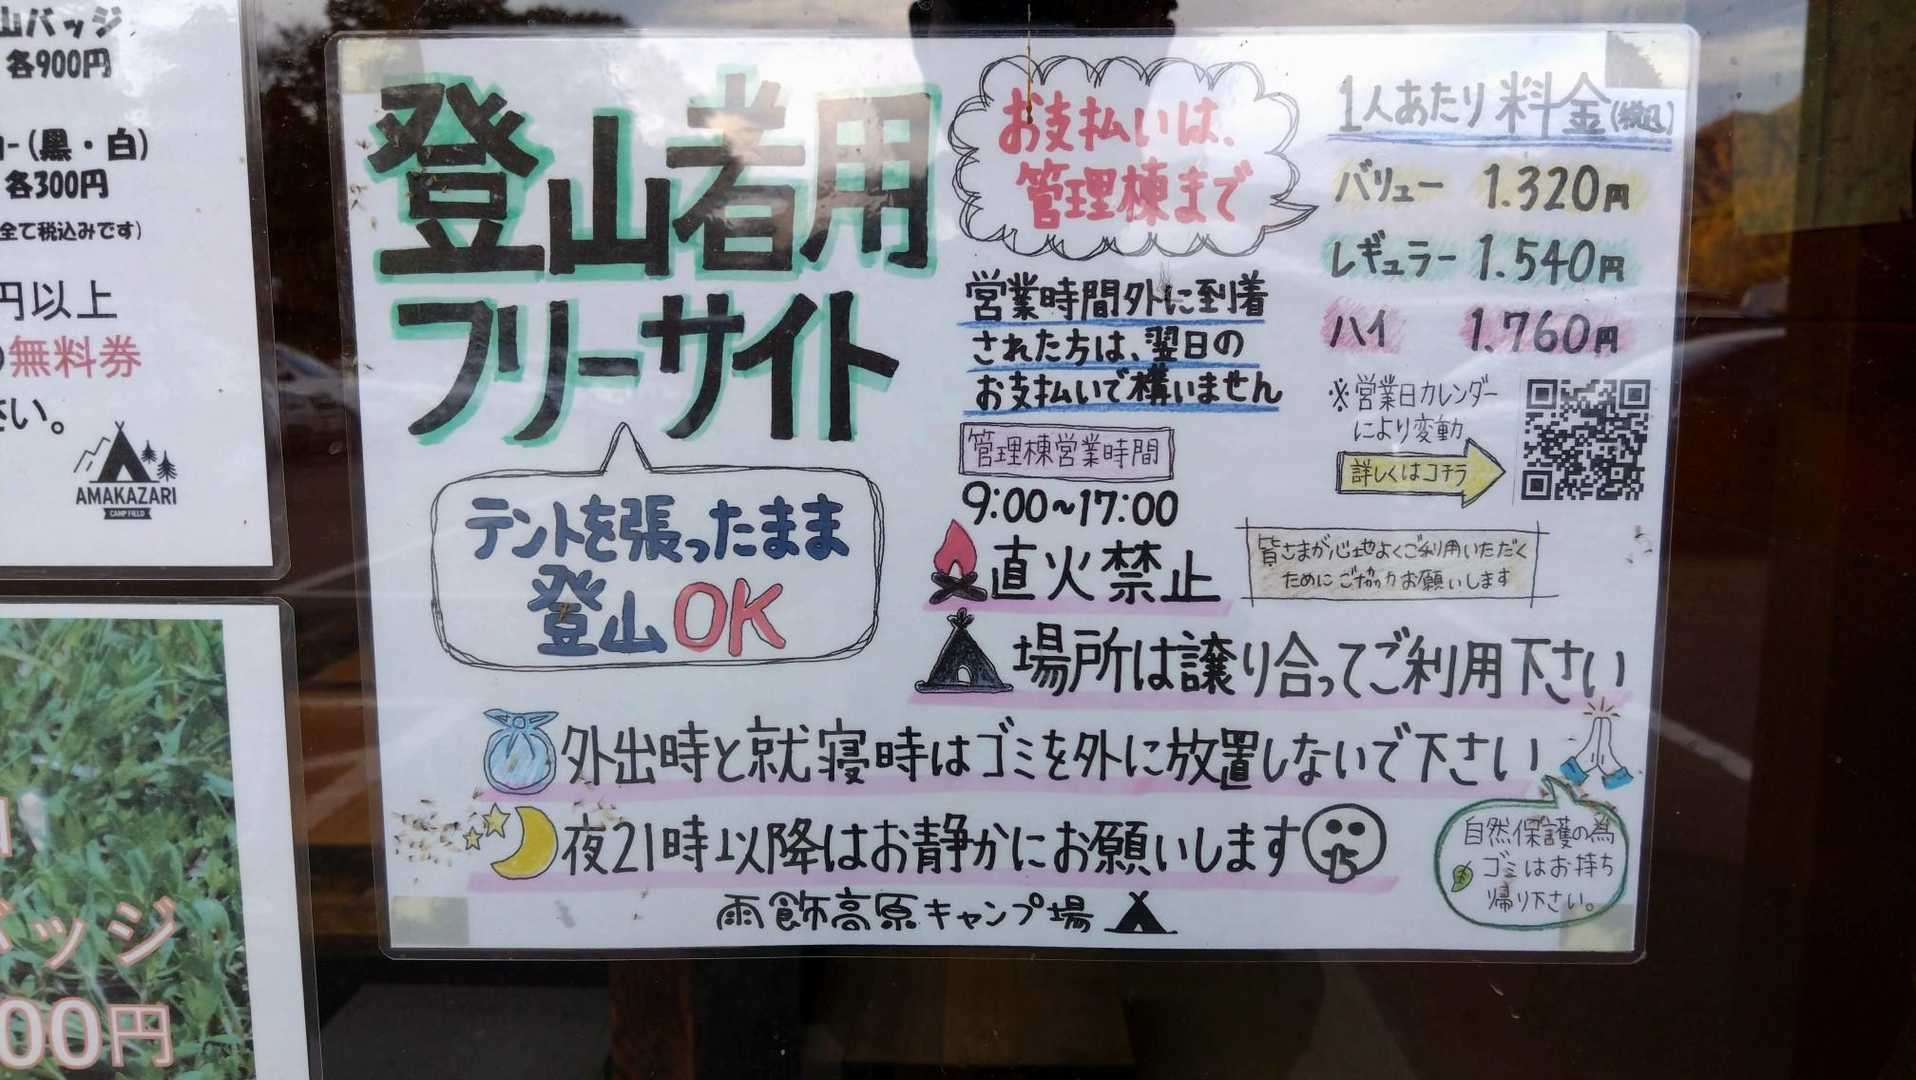 山バッジ
各900円
(黒・白)
各300円
全て税込みです)
円以上
無料券
さい。
AMAKAZARI
CAMP FIELD
バッジ
00円
登山者用
フリーサイト
テントを張ったまま
登山OK
お支払いは、
管理棟まで
営業時間外に到着
された方は、翌日の
お支払いで構いません
管理棟営業時間
9:00~17:00
1人あたり料金(税込)
バリュー 1.320円
レギュラー 1.540円
ハイ 1.760円
※営業日カレンダー
により変動
詳しくはコチラ
皆さまが心地よくご利用いただく
ためにご協力お願いします
直火禁止
場所は譲り合ってご利用下さい
外出時と就寝時はゴミを外に放置しないで下さい
夜21時以降はお静かにお願いします
自然保護の為
ゴミはお持ち
帰り下さい。
雨飾高原キャンプ場